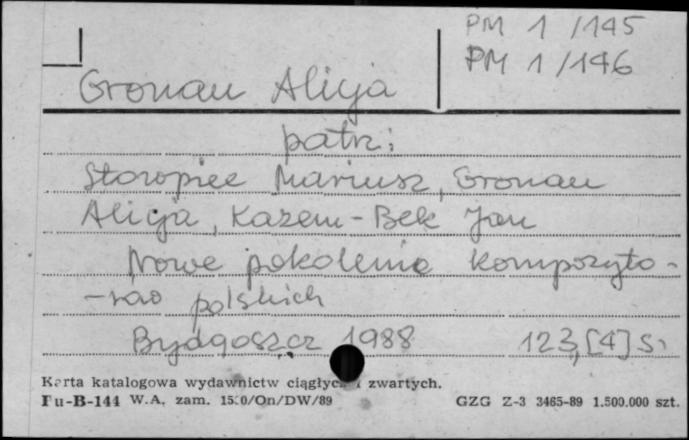 PM 1 /145
PM 1 /146
Gronau Alicja
patrz:
Storopiec Mariusz, Gronau
Alicja, Kazem-Bek Jan
Nowe pokolenie kompozyto-
-rów polskich
Bydgoszcz 1988 123,[4] s.
Karta katalogowa wydawnictw ciągłych i zwartych.
Pu-B-144 W.A. zam. 1510/On/DW/89 GZG Z-3 3465-89 1.500.000 szt.